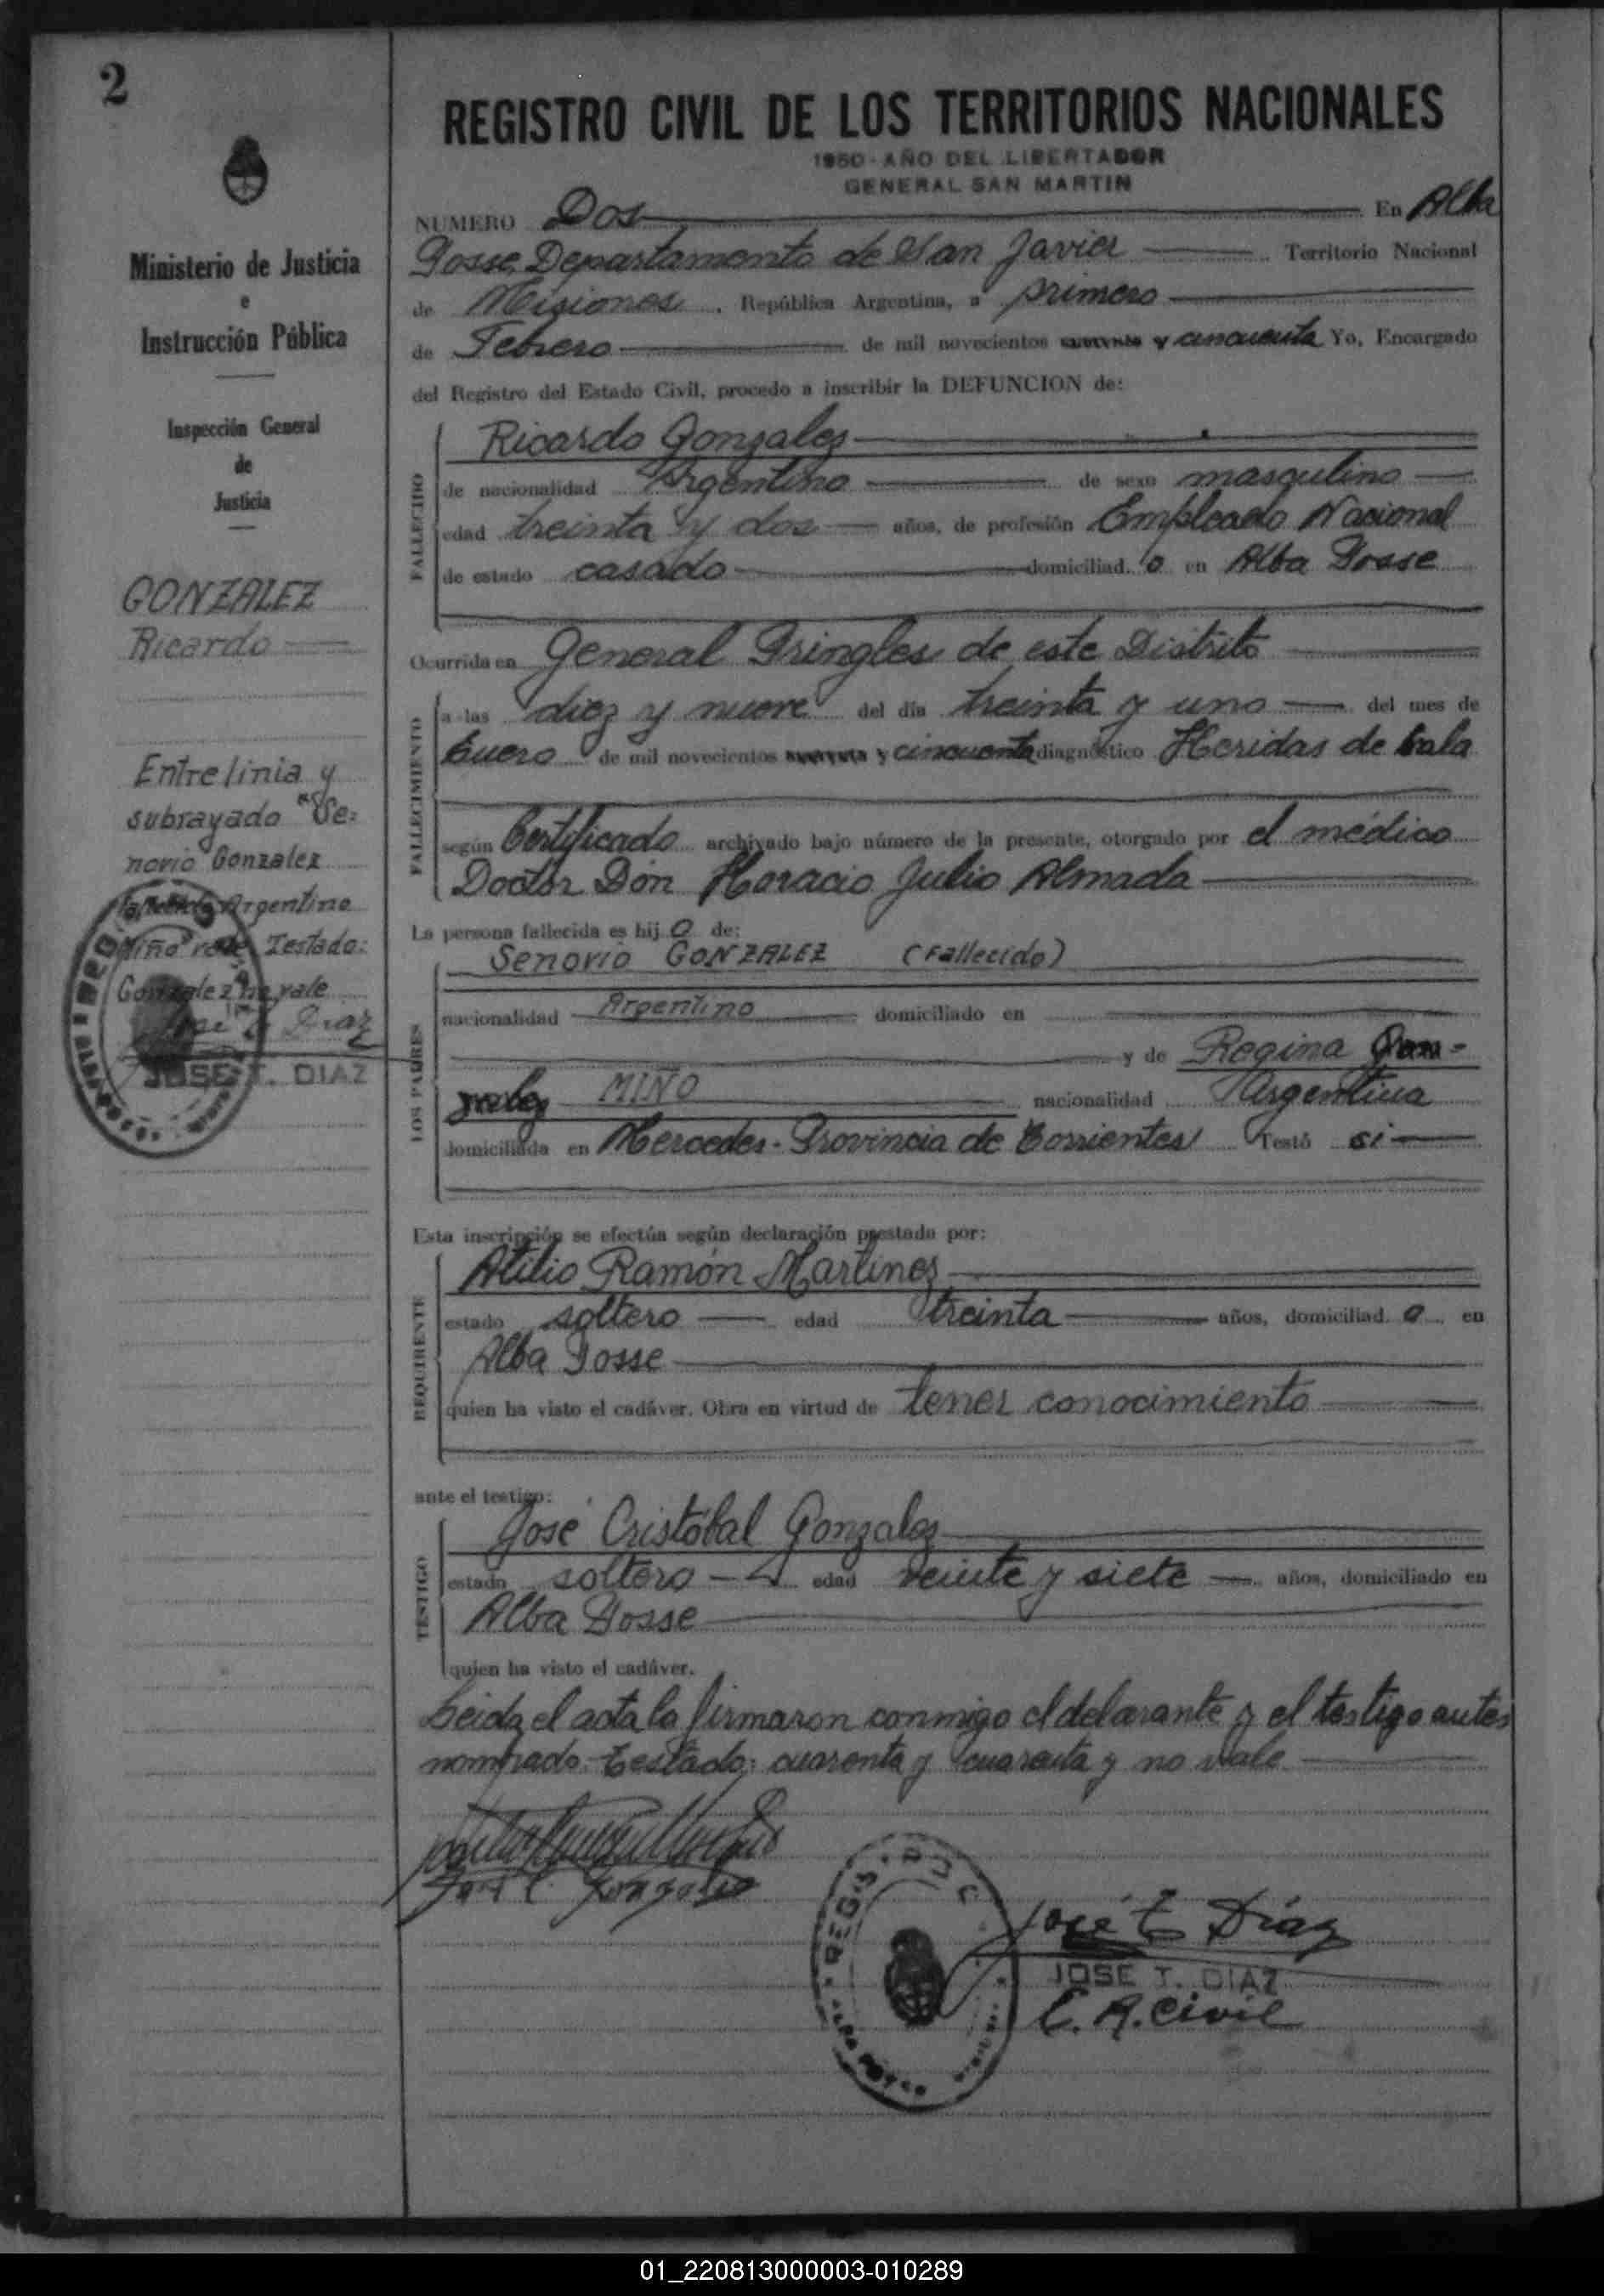 2
REGISTRO CIVIL DE LOS TERRITORIOS NACIONALES
1950 - AÑO DEL LIBERTADOR
GENERAL SAN MARTIN
Ministerio de Justicia
e
Instrucción Pública
Inspección General
de
Justicia
GONZALEZ
Ricardo
Entrelinia y
subrayado "Se-
norio Gonzalez
Argentino
Miño" vale Testado:
Gonzalez no vale
José T. Diaz
JOSE T. DIAZ
NUMERO Dos En Alba
Posse Departamento de San Javier Territorio Nacional
de Misiones, República Argentina, a primero
de Febrero de mil novecientos y cincuenta Yo, Encargado
del Registro del Estado Civil, procedo a inscribir la DEFUNCION de:
FALLECIDO
Ricardo Gonzalez
de nacionalidad Argentino de sexo masculino
edad treinta y dos años, de profesión Empleado Nacional
de estado casado domiciliad o en Alba Posse
Ocurrida en General Pringles de este Distrito
FALLECIMIENTO
a las diez y nueve del día treinta y uno del mes de
Enero de mil novecientos y cincuenta diagnóstico Heridas de bala
según Certificado archivado bajo número de la presente, otorgado por el médico
Doctor Don Horacio Julio Almada
La persona fallecida es hij o de:
LOS PADRES
Senorio GONZALEZ (Fallecido)
nacionalidad Argentino domiciliado en
y de Regina Gon-
zalez MIÑO nacionalidad Argentina
domiciliada en Mercedes - Provincia de Corrientes Testó si
Esta inscripción se efectúa según declaración prestada por:
REQUIRENTE
Atilio Ramón Martinez
estado soltero edad treinta años, domiciliad o en
Alba Posse
quien ha visto el cadáver. Obra en virtud de tener conocimiento
ante el testigo:
TESTIGO
José Cristóbal Gonzalez
estado soltero edad veinte y siete años, domiciliado en
Alba Posse
quien ha visto el cadáver.
Leida el acta la firmaron conmigo el delarante y el testigo antes
nombrado. Testado: cuarenta y cuarenta y no vale
José C. Gonzalez
José T. Diaz
JOSE T. DIAZ
E. R. Civil
01_220813000003-010289